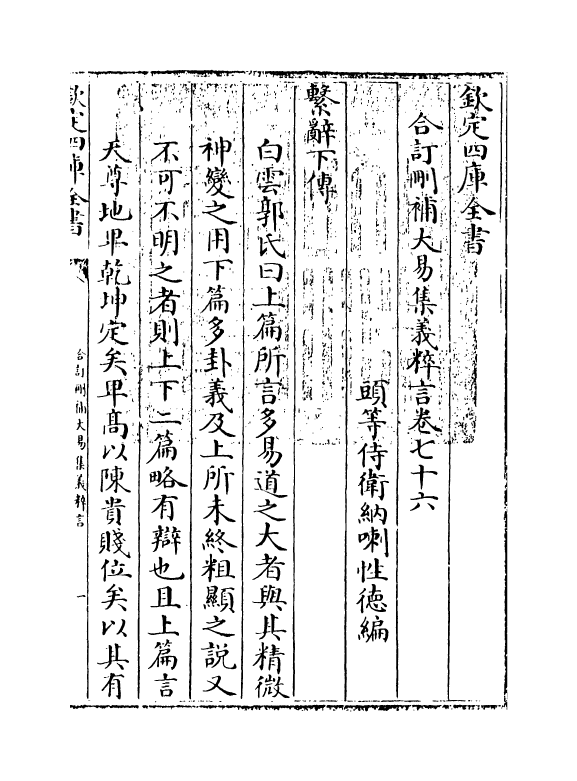 欽定四庫全書
合訂刪補大易集義粹言卷七十六
頭等侍衛納喇性德編
繫辭下傳
白雲郭氏曰上篇所言多易道之大者與其精微
神變之用下篇多卦義及上所未終粗顯之說又
不可不明之者則上下二篇略有辯也且上篇言
天尊地卑乾坤定矣卑髙以陳貴賤位矣以其有
欽定四庫全書
合訂刪補大易集義粹言
一